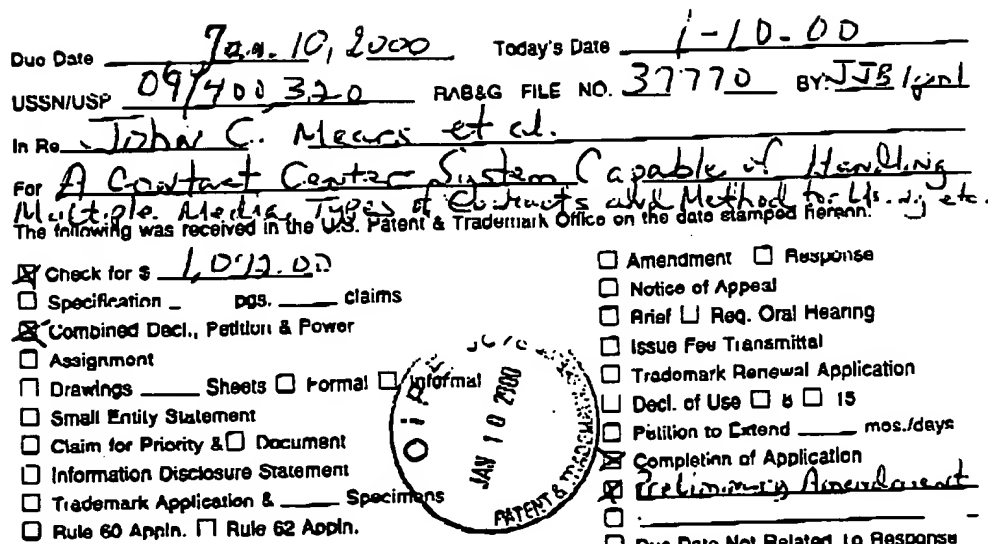 Due Date Jan. 10, 2000 Today's Date 1-10-00
USSN/USP 09/400,320 RAB&G FILE NO. 37770 BY: JJB/
In Re John C. Mears et al.
For A Contact Center System Capable of Handling
Multiple Media Types of Contacts and Method for Using etc.
The following was received in the U.S. Patent & Trademark Office on the date stamped hereon:
☒ Check for $
☐ Specification _ pgs. ____ claims
☒ Combined Decl., Petition & Power
☐ Assignment
☐ Drawings ____ Sheets ☐ Formal ☐ Informal
☐ Small Entity Statement
☐ Claim for Priority & ☐ Document
☐ Information Disclosure Statement
☐ Trademark Application & ____ Specimens
☐ Rule 60 Appln. ☐ Rule 62 Appln.
OIPE
JAN 10 2000
PATENT & TRADEMARK
☐ Amendment ☐ Response
☐ Notice of Appeal
☐ Brief ☐ Req. Oral Hearing
☐ Issue Fee Transmittal
☐ Trademark Renewal Application
☐ Decl. of Use ☐ 8 ☐ 15
☐ Petition to Extend ____ mos./days
☒ Completion of Application
☒ Preliminary Amendment
☐ ____
☐ Due Date Not Related To Response